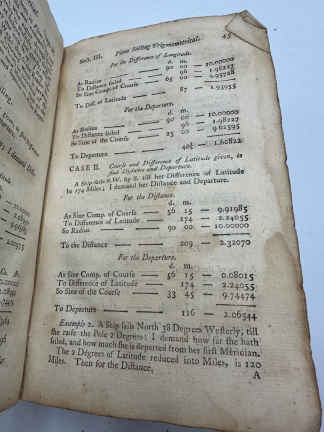 Sect. III. Plane Sailing Trigonometrical. 45
For the Difference of Longitude.
d. m.
As Radius — 90 00 — 10.00000
To Distance sailed — 96 — 1.98227
So Sine Comp. of Course — 65 00 — 9.95728
To Diff. of Latitude — 87 — 1.93955
For the Departure.
d. m.
As Radius — 90 00 — 10.00000
To Distance sailed — 96 — 1.98227
So Sine of the Course — 25 00 — 9.62595
To Departure — 1.60822
CASE II. Course and Difference of Latitude given, to
find Distance and Departure.
A Ship sails S.W. by S. till her Difference of Latitude
be 174 Miles; I demand her Distance and Departure.
For the Distance.
d. m.
As Sine Comp. of Course — 56 15 — 9.91985
To Difference of Latitude — 174 — 2.24055
So Radius — 90 00 — 10.00000
To the Distance — 209 — 2.32070
For the Departure.
d. m.
As Sine Comp. of Course — 56 15 — 0.08015
To Difference of Latitude — 174 — 2.24055
So Sine of the Course — 33 45 — 9.74474
To Departure — 116 — 2.06544
Example 2. A Ship sails North 38 Degrees Westerly, till
she raise the Pole 2 Degrees; I demand how far she hath
sailed, and how much she is departed from her first Meridian.
The 2 Degrees of Latitude reduced into Miles, is 120
Miles. Then for the Distance,
A